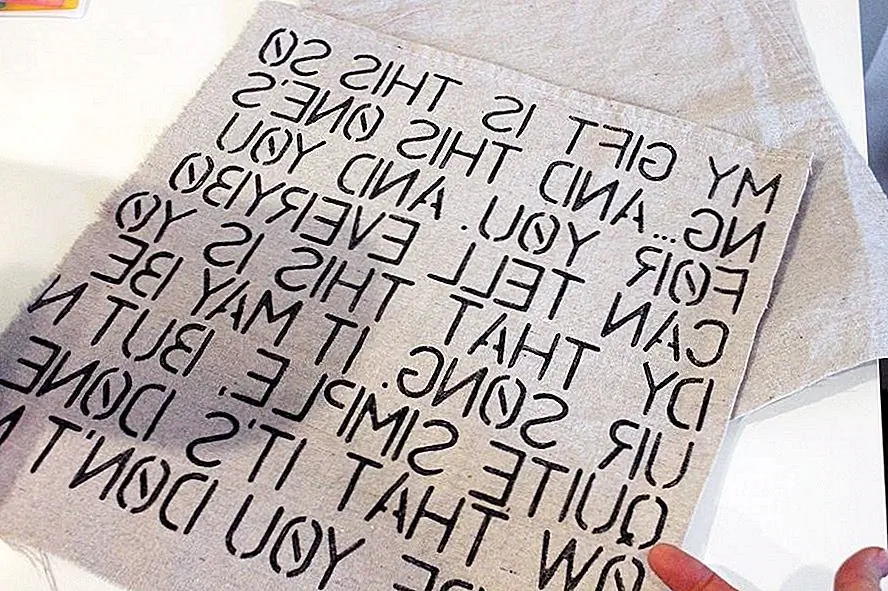 MY GIFT IS THIS SO
NG...AND THIS ONE'S
FOR YOU. AND YOU
CAN TELL EVERYBO
DY THAT THIS IS YO
UR SONG. IT MAY BE
QUITE SIMPLE, BUT N
OW THAT IT'S DONE
YOU DON'T